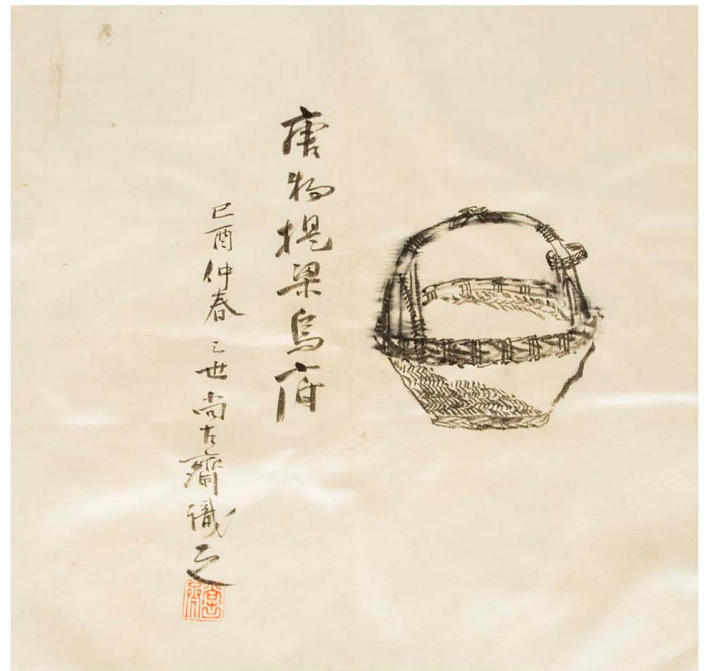 唐物提梁烏府
己酉仲春三世尚古齋識之